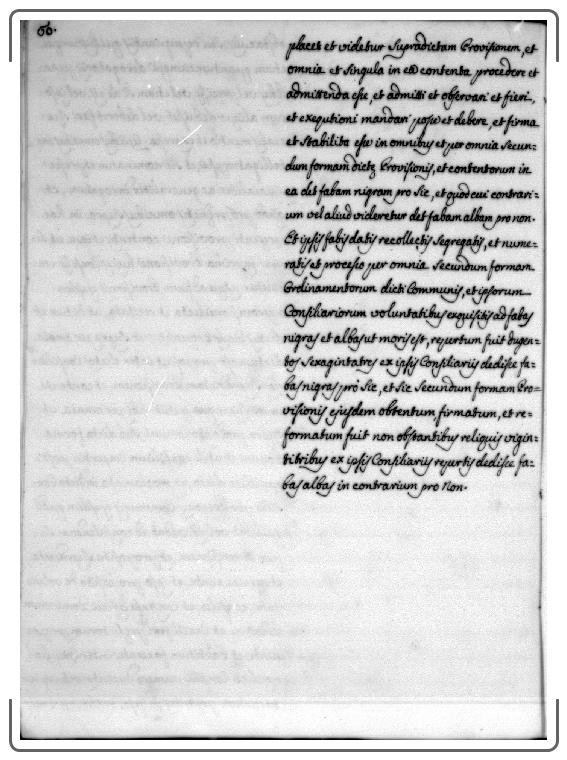 66.
placet et videtur supradictam Provisionem, et
omnia et singula in ea contenta procedere et
admittenda esse, et admitti et observari et fieri,
et exequtioni mandari posse et debere, et firma
et stabilita esse in omnibus et per omnia secun=
dum formam dictę Provisionis, et contentorum in
ea det fabam nigram pro sic, et quod cui contrari=
um vel aliud videretur det fabam albam pro non.
Et ipsis fabis datis recollectis segregatis, et nume=
ratis et processo per omnia secundum formam
Ordinamentorum dicti Communis, et ipsorum
Consiliariorum voluntatibus exquisitis ad fabas
nigras et albas ut moris est, repertum fuit dugen=
tos sexaginta tres ex ipsis Consiliariis dedisse fa=
bas nigras pro sic, et sic secundum formam Pro=
visionis ejusdem obtentum firmatum, et re=
formatum fuit non obstantibus reliquis vigin=
titribus ex ipsis Consiliariis repertis dedisse fa=
bas albas in contrarium pro Non.